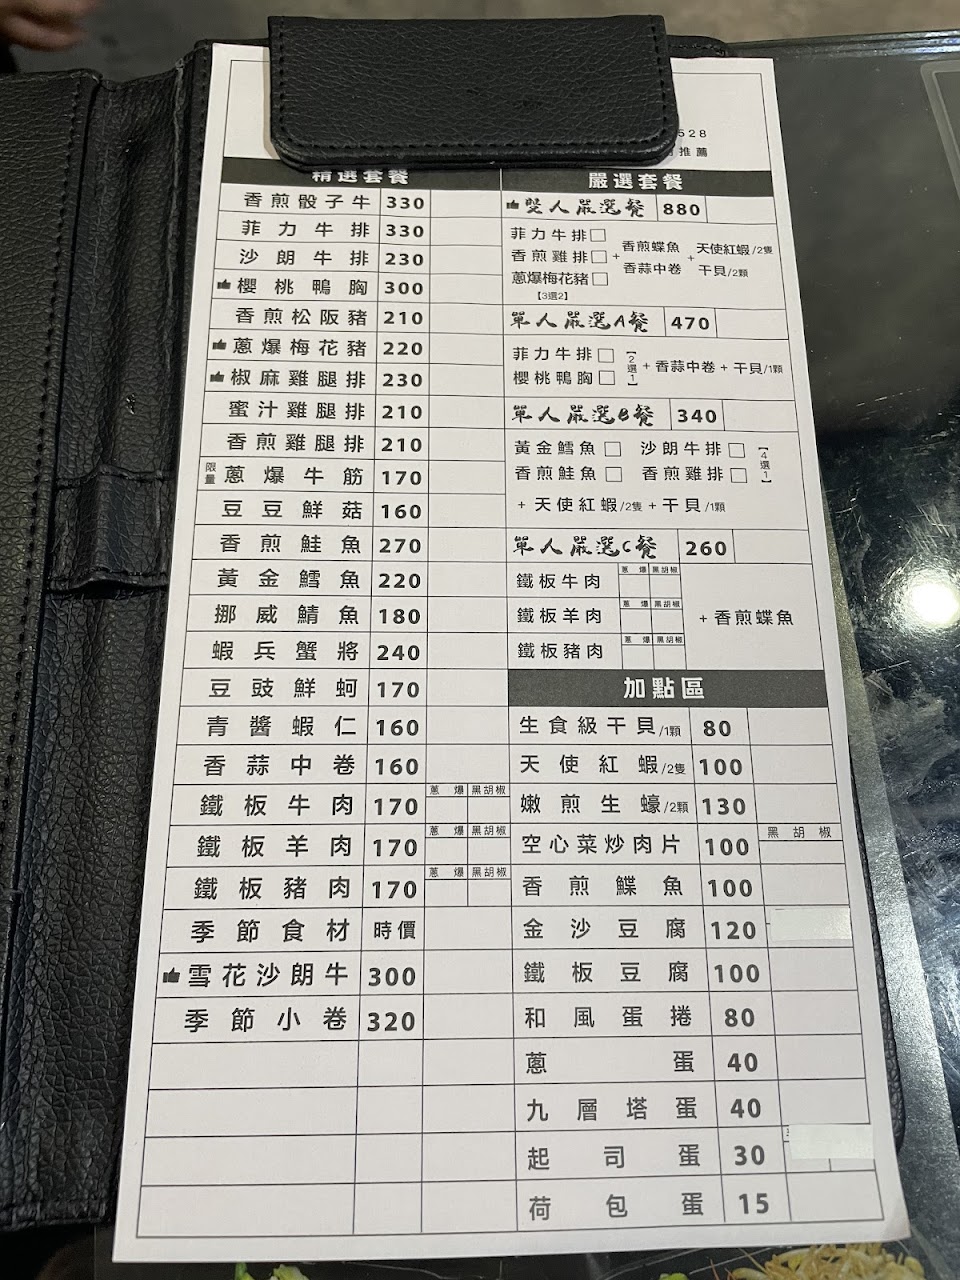 528
推薦
精選套餐
香煎骰子牛 330
菲力牛排 330
沙朗牛排 230
櫻桃鴨胸 300
香煎松阪豬 210
蔥爆梅花豬 220
椒麻雞腿排 230
蜜汁雞腿排 210
香煎雞腿排 210
限量 蔥爆牛筋 170
豆豆鮮菇 160
香煎鮭魚 270
黃金鱈魚 220
挪威鯖魚 180
蝦兵蟹將 240
豆豉鮮蚵 170
青醬蝦仁 160
香蒜中卷 160
鐵板牛肉 170 蔥爆 黑胡椒
鐵板羊肉 170 蔥爆 黑胡椒
鐵板豬肉 170 蔥爆 黑胡椒
季節食材 時價
雪花沙朗牛 300
季節小卷 320
嚴選套餐
雙人嚴選餐 880
菲力牛排□
香煎雞排□ + 香煎鰈魚 香蒜中卷 + 天使紅蝦/2隻 干貝/2顆
蔥爆梅花豬□
【3選2】
單人嚴選A餐 470
菲力牛排□
櫻桃鴨胸□ 【2選1】 + 香蒜中卷 + 干貝/1顆
單人嚴選B餐 340
黃金鱈魚□ 沙朗牛排□
香煎鮭魚□ 香煎雞排□ 【4選1】
+ 天使紅蝦/2隻 + 干貝/1顆
單人嚴選C餐 260
鐵板牛肉 蔥爆 黑胡椒
鐵板羊肉 蔥爆 黑胡椒 + 香煎鰈魚
鐵板豬肉 蔥爆 黑胡椒
加點區
生食級干貝/1顆 80
天使紅蝦/2隻 100
嫩煎生蠔/2顆 130
空心菜炒肉片 100 黑胡椒
香煎鰈魚 100
金沙豆腐 120
鐵板豆腐 100
和風蛋捲 80
蔥蛋 40
九層塔蛋 40
起司蛋 30
荷包蛋 15